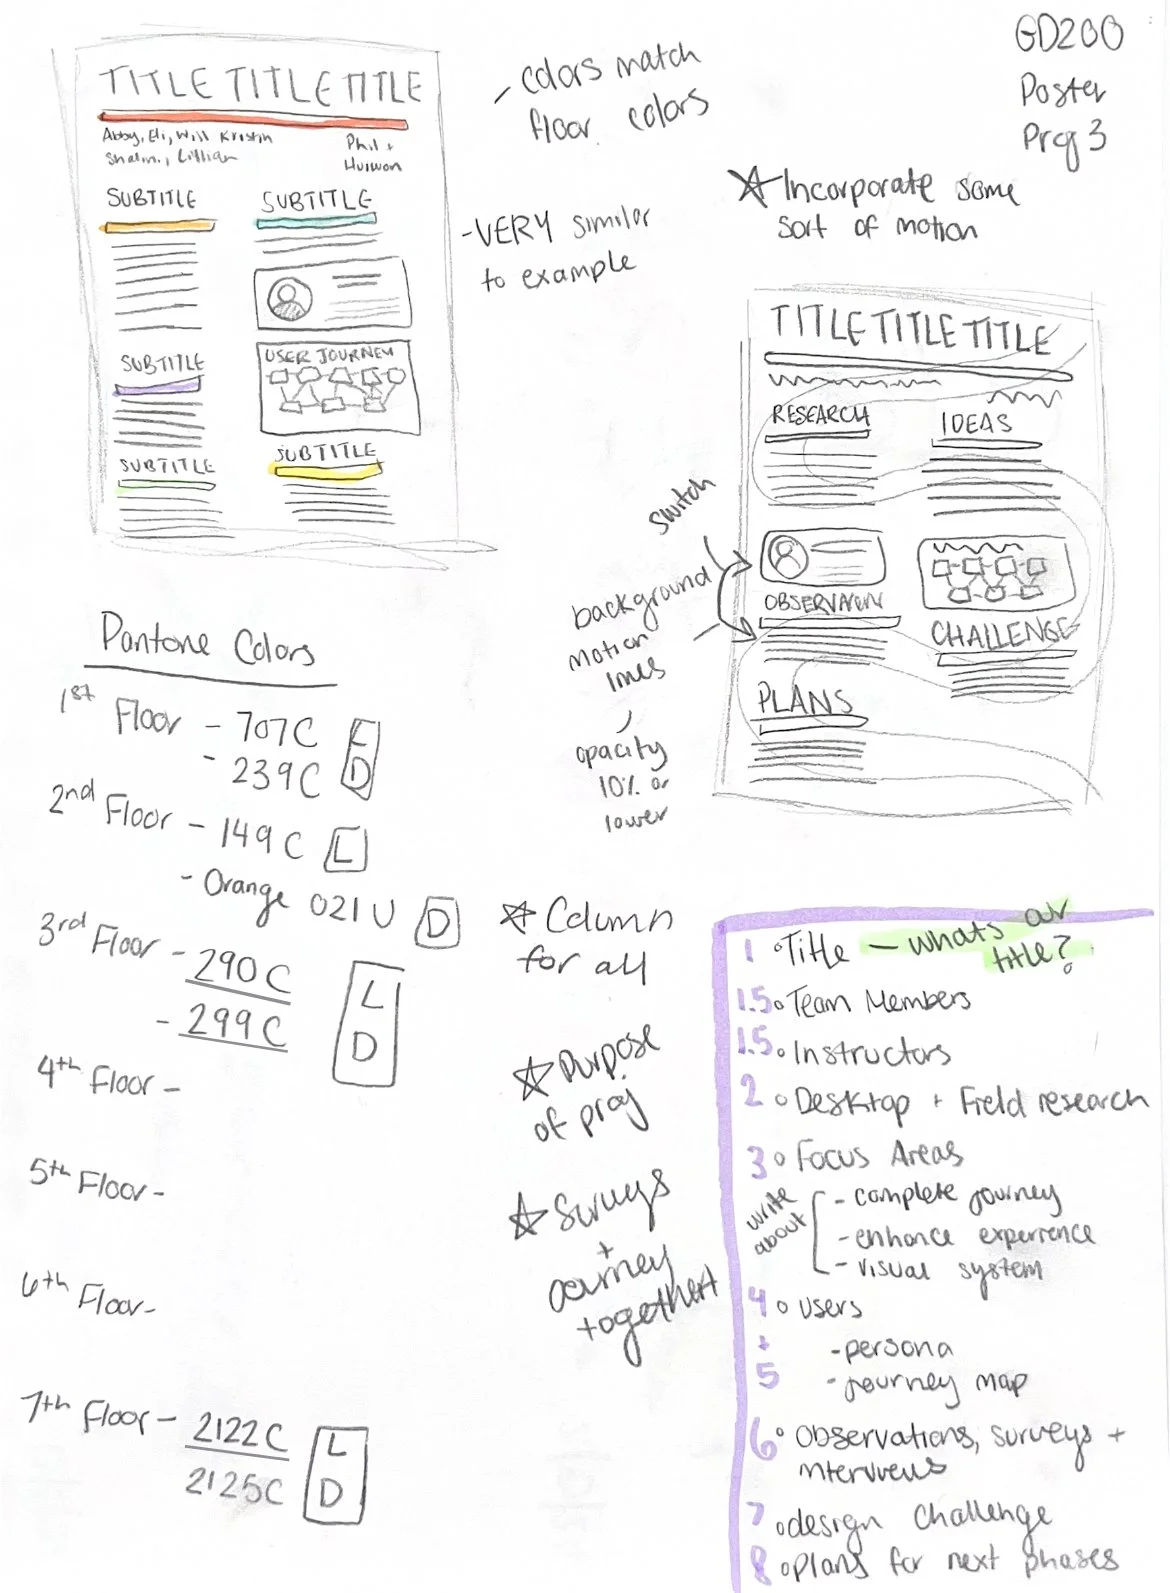 GD200
Poster
Proj 3
TITLE TITLE TITLE
Abby, Eli, Will Kristin
Shalin., Lillian
Phil +
Huiwon
SUBTITLE
SUBTITLE
SUBTITLE
USER JOURNEY
SUBTITLE
SUBTITLE
- colors match
floor colors
- VERY similar
to example
☆ Incorporate some
sort of motion
TITLE TITLE TITLE
RESEARCH
IDEAS
OBSERVATION
CHALLENGE
PLANS
switch
background
motion
lines
opacity
10% or
lower
Pantone Colors
1st Floor - 707C L
- 239C D
2nd Floor - 149C L
- Orange 021U D
3rd Floor - 290C L
- 299C D
4th Floor -
5th Floor -
6th Floor -
7th Floor - 2122C L
2125C D
☆ Column
for all
☆ Purpose
of proj
☆ Surveys
+
journey
together!
1 ◦ Title - whats our
title?
1.5 ◦ Team Members
1.5 ◦ Instructors
2 ◦ Desktop + Field research
3 ◦ Focus Areas
write
about
- complete journey
- enhance experience
- visual system
4 ◦ users
+
- persona
5 - journey map
6 ◦ Observations, surveys +
interviews
7 ◦ design challenge
8 ◦ plans for next phases